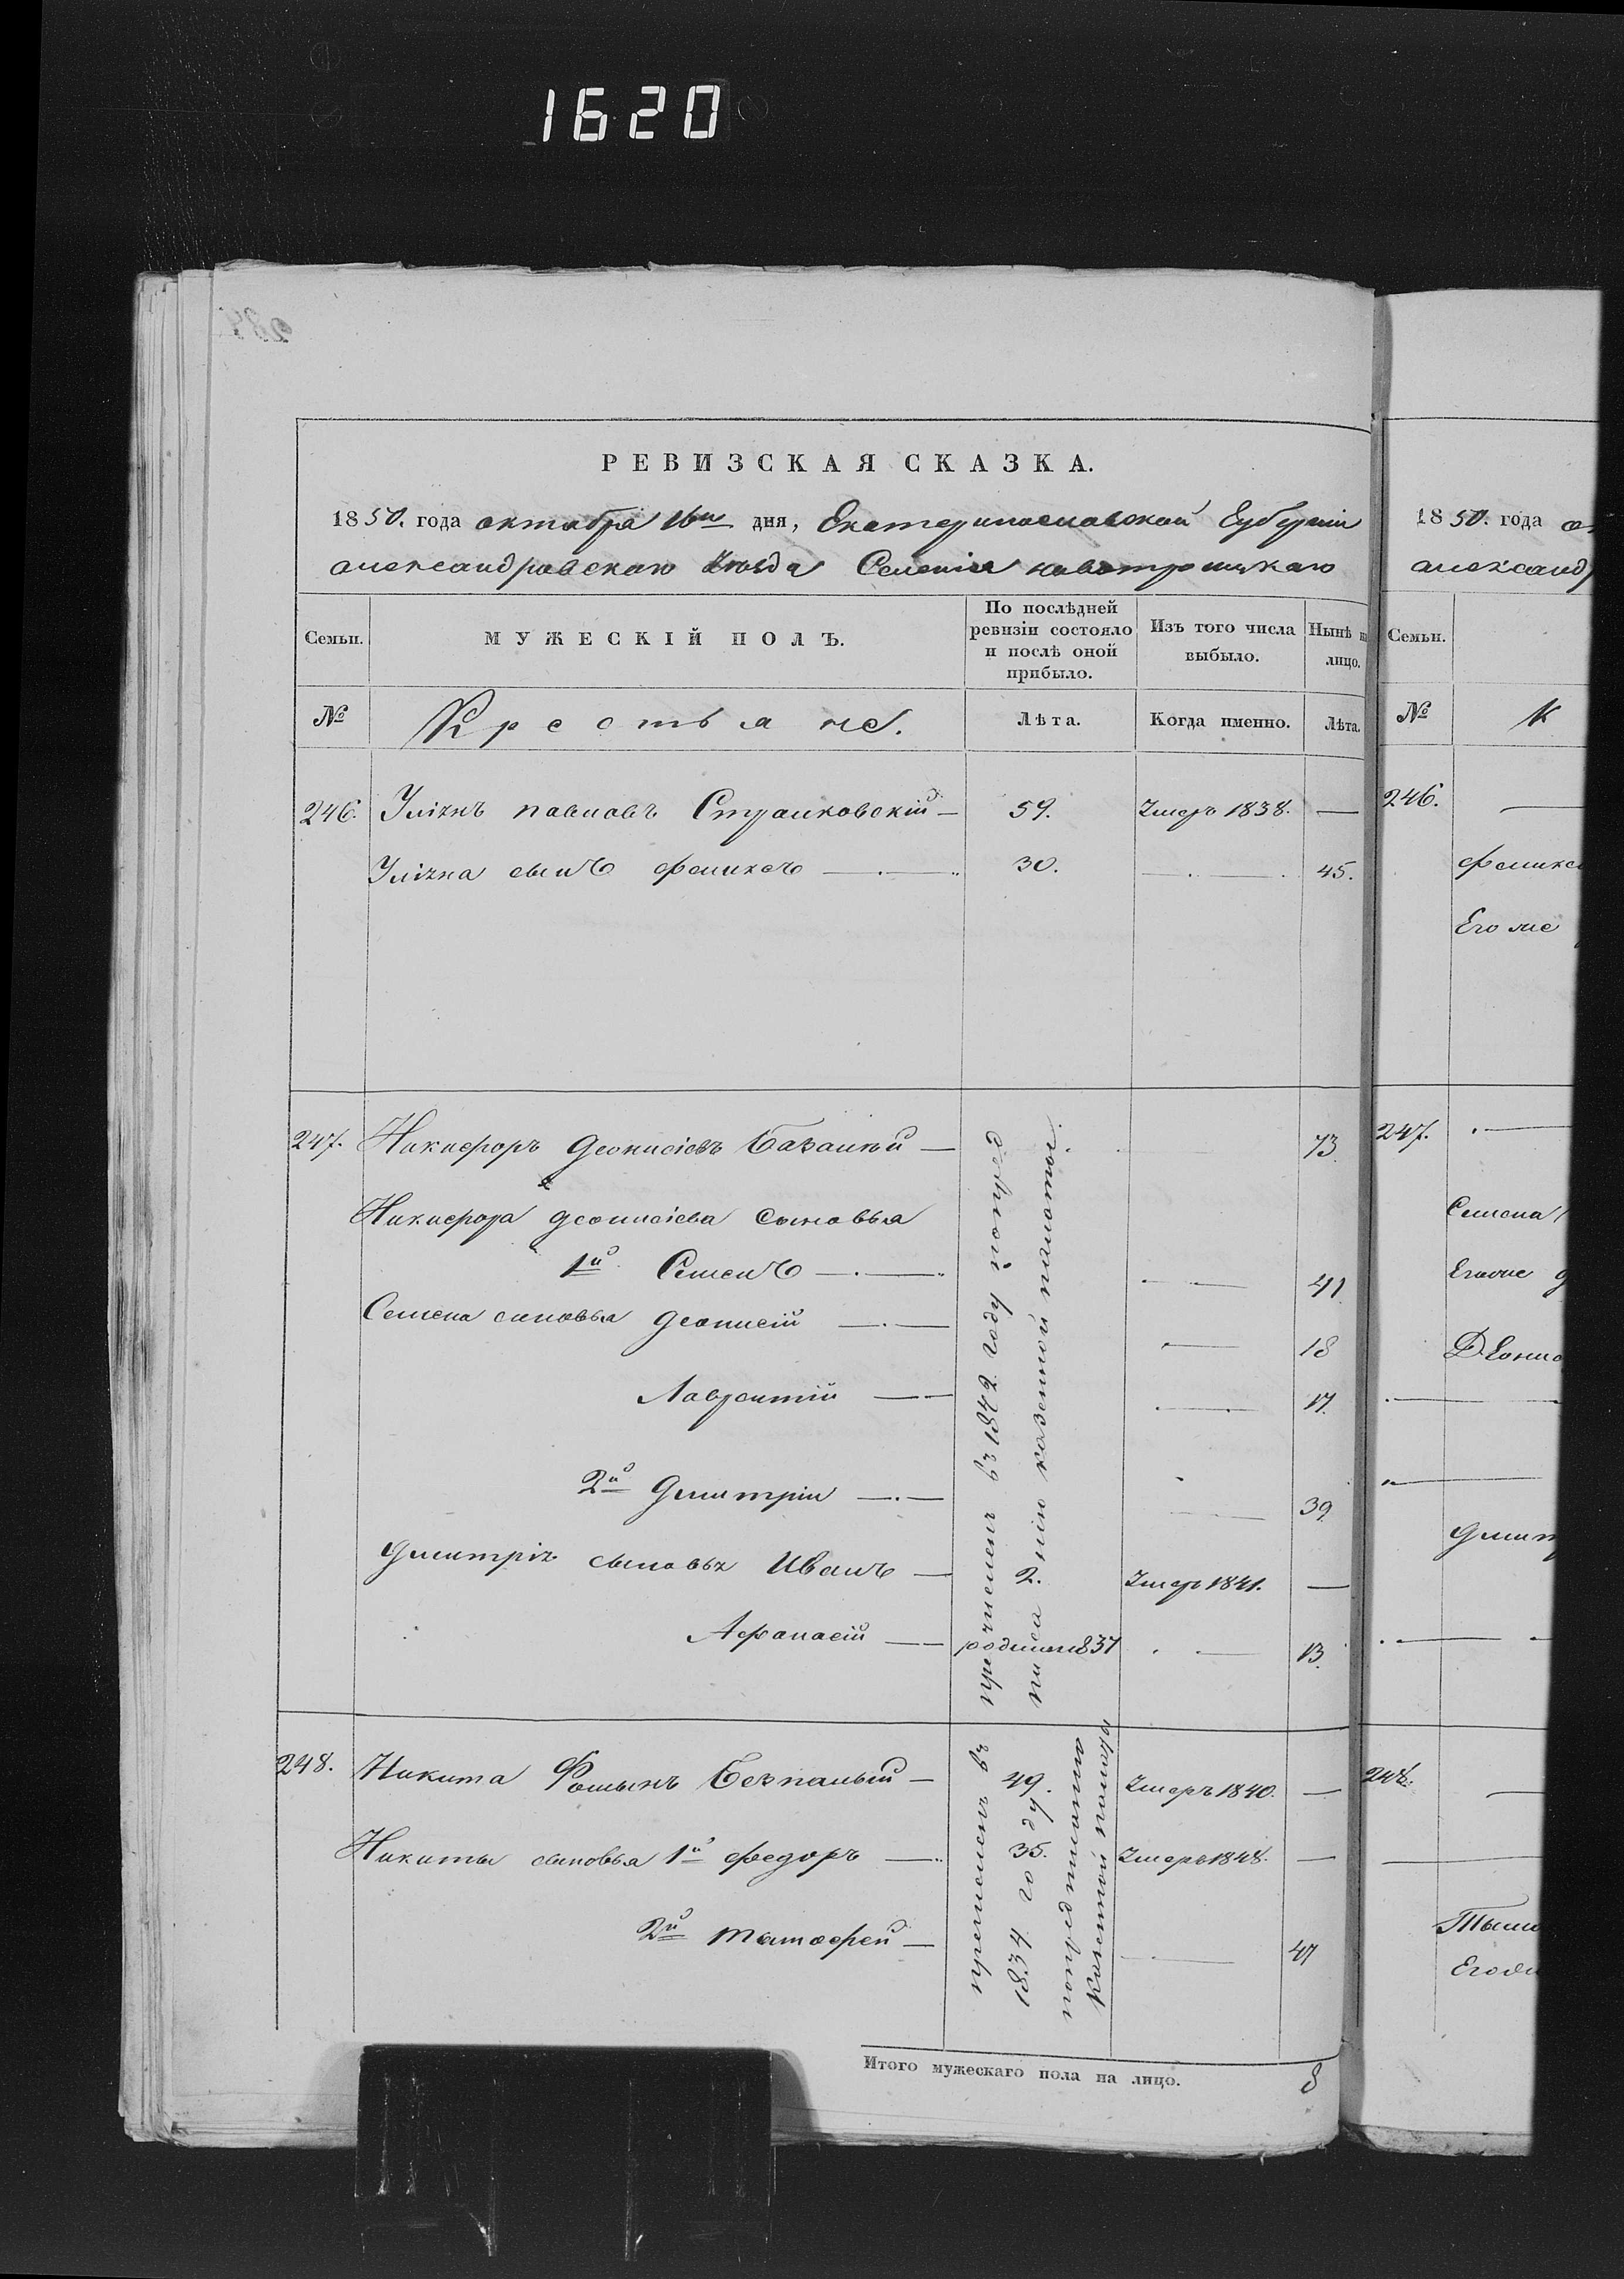 1620
РЕВИЗСКАЯ СКАЗКА.
1850. года октября 16го дня, Екатеринославской Губернии
александровскаго Уезда Селения новотроицкаго
Семьи.
МУЖЕСКІЙ ПОЛЪ.
По послѣдней ревизіи состояло и послѣ оной прибыло.
Изъ того числа выбыло.
Нынѣ на лицо.
№
Крестьяне.
Лѣта.
Когда именно.
Лѣта.
246. павловъ 59. Умеръ 1838. —
сынъ феликсъ 30. 45.
247. Никифоръ Деонисіевъ 73
Никифора деонисіева сыновья
1й Семенъ 41
Семена сыновья Деонисій 18
Лаврентій 17
2й Дмитрій 39
Дмитрія сыновья Иванъ 2. Умеръ 1841. —
Афанасій родился 1837 13.
причисленъ въ 1842 году по
казенной палаты.
248. Никита Фоминъ Безпалый 49. Умеръ 1840. —
Никиты сыновья 1й федоръ 35. Умеръ 1848. —
2й тимофей 47
въ
1834 году
по предписанію
Казенной палаты
Итого мужескаго пола на лицо. 8
1850. года
александр
Семьи.
№
К
246.
феликса
Его же
247.
Семена
Его же
Деонис
Дмит
248.
Тимо